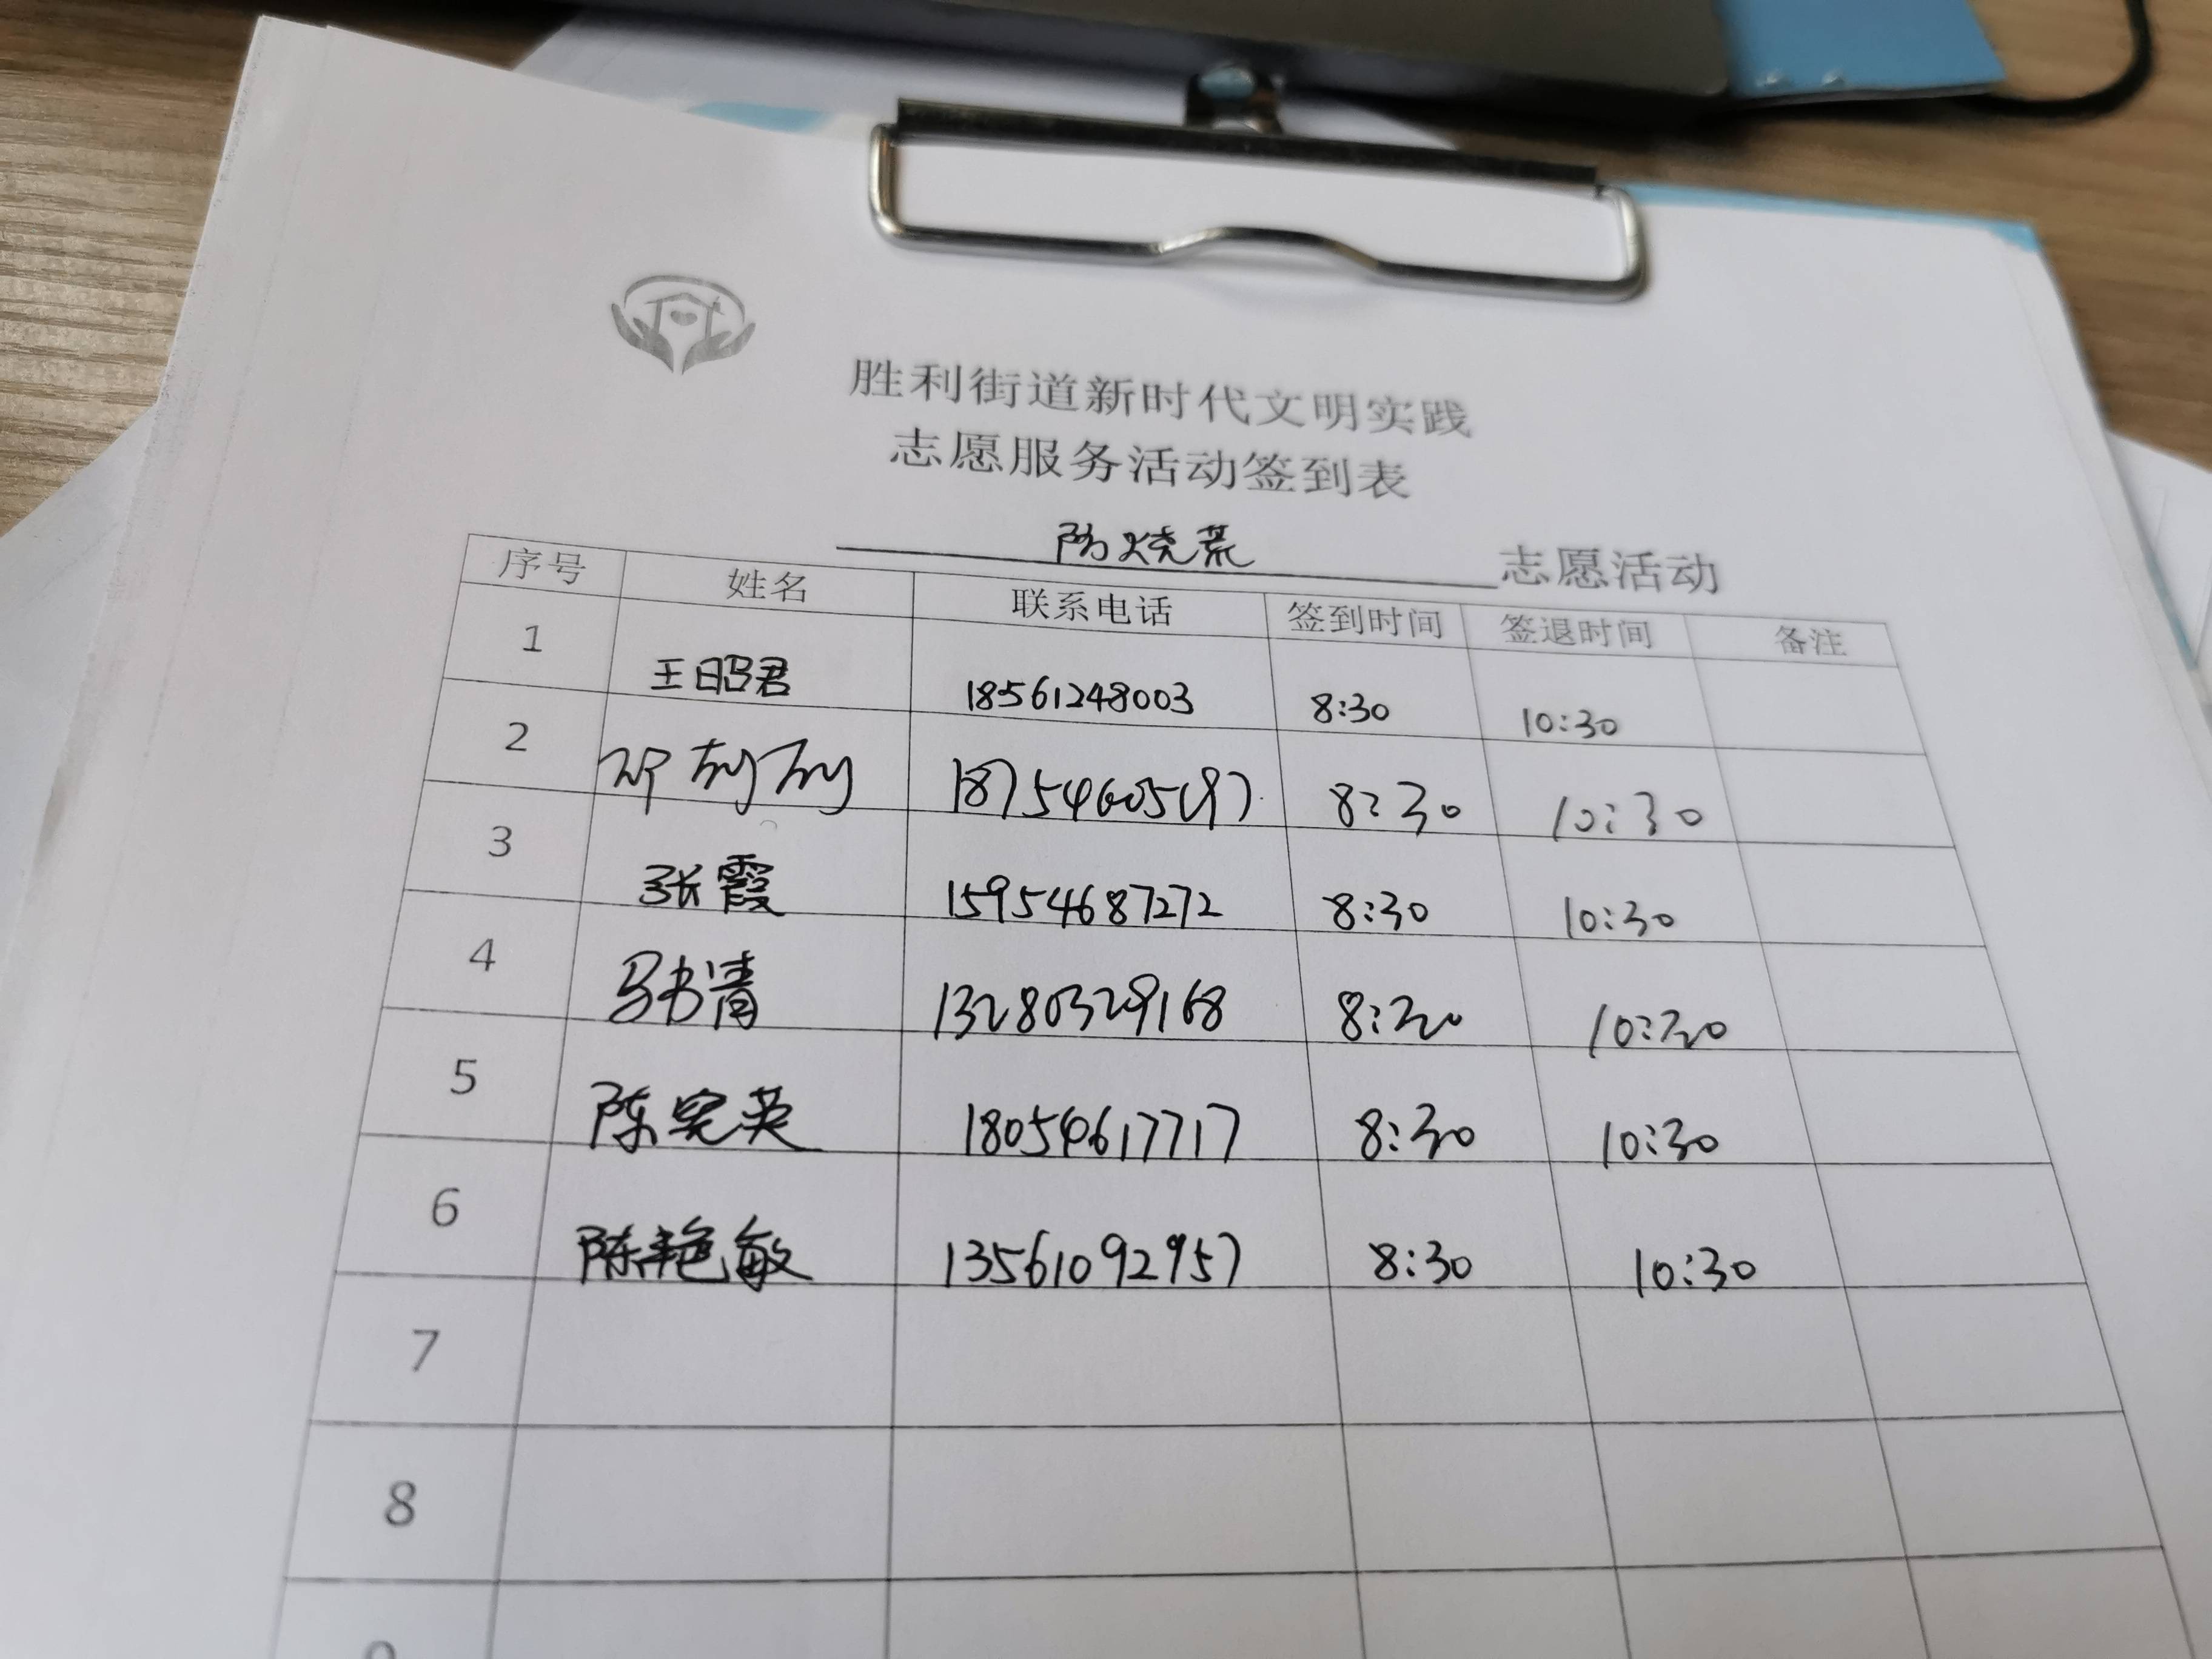 胜利街道新时代文明实践
志愿服务活动签到表
防烧荒 志愿活动
序号 姓名 联系电话 签到时间 签退时间 备注
1 王昭君 18561248003 8:30 10:30
2 187546051 8:30 10:30
3 张霞 15954687272 8:30 10:30
4 马书清 13280329168 8:30 10:30
5 陈宪英 18054617717 8:30 10:30
6 陈艳敏 13561092957 8:30 10:30
7
8
9